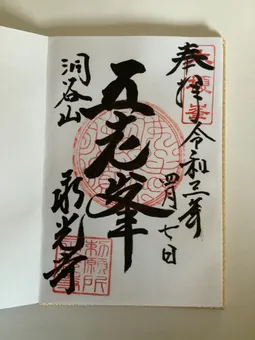 奉拝
令和三年
四月七日
五老峯
洞谷山
永光寺
勅願所